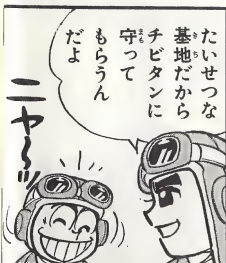 たいせつな
基地だから
チビタンに
守って
もらうん
だよ
ニヤ〜ッ